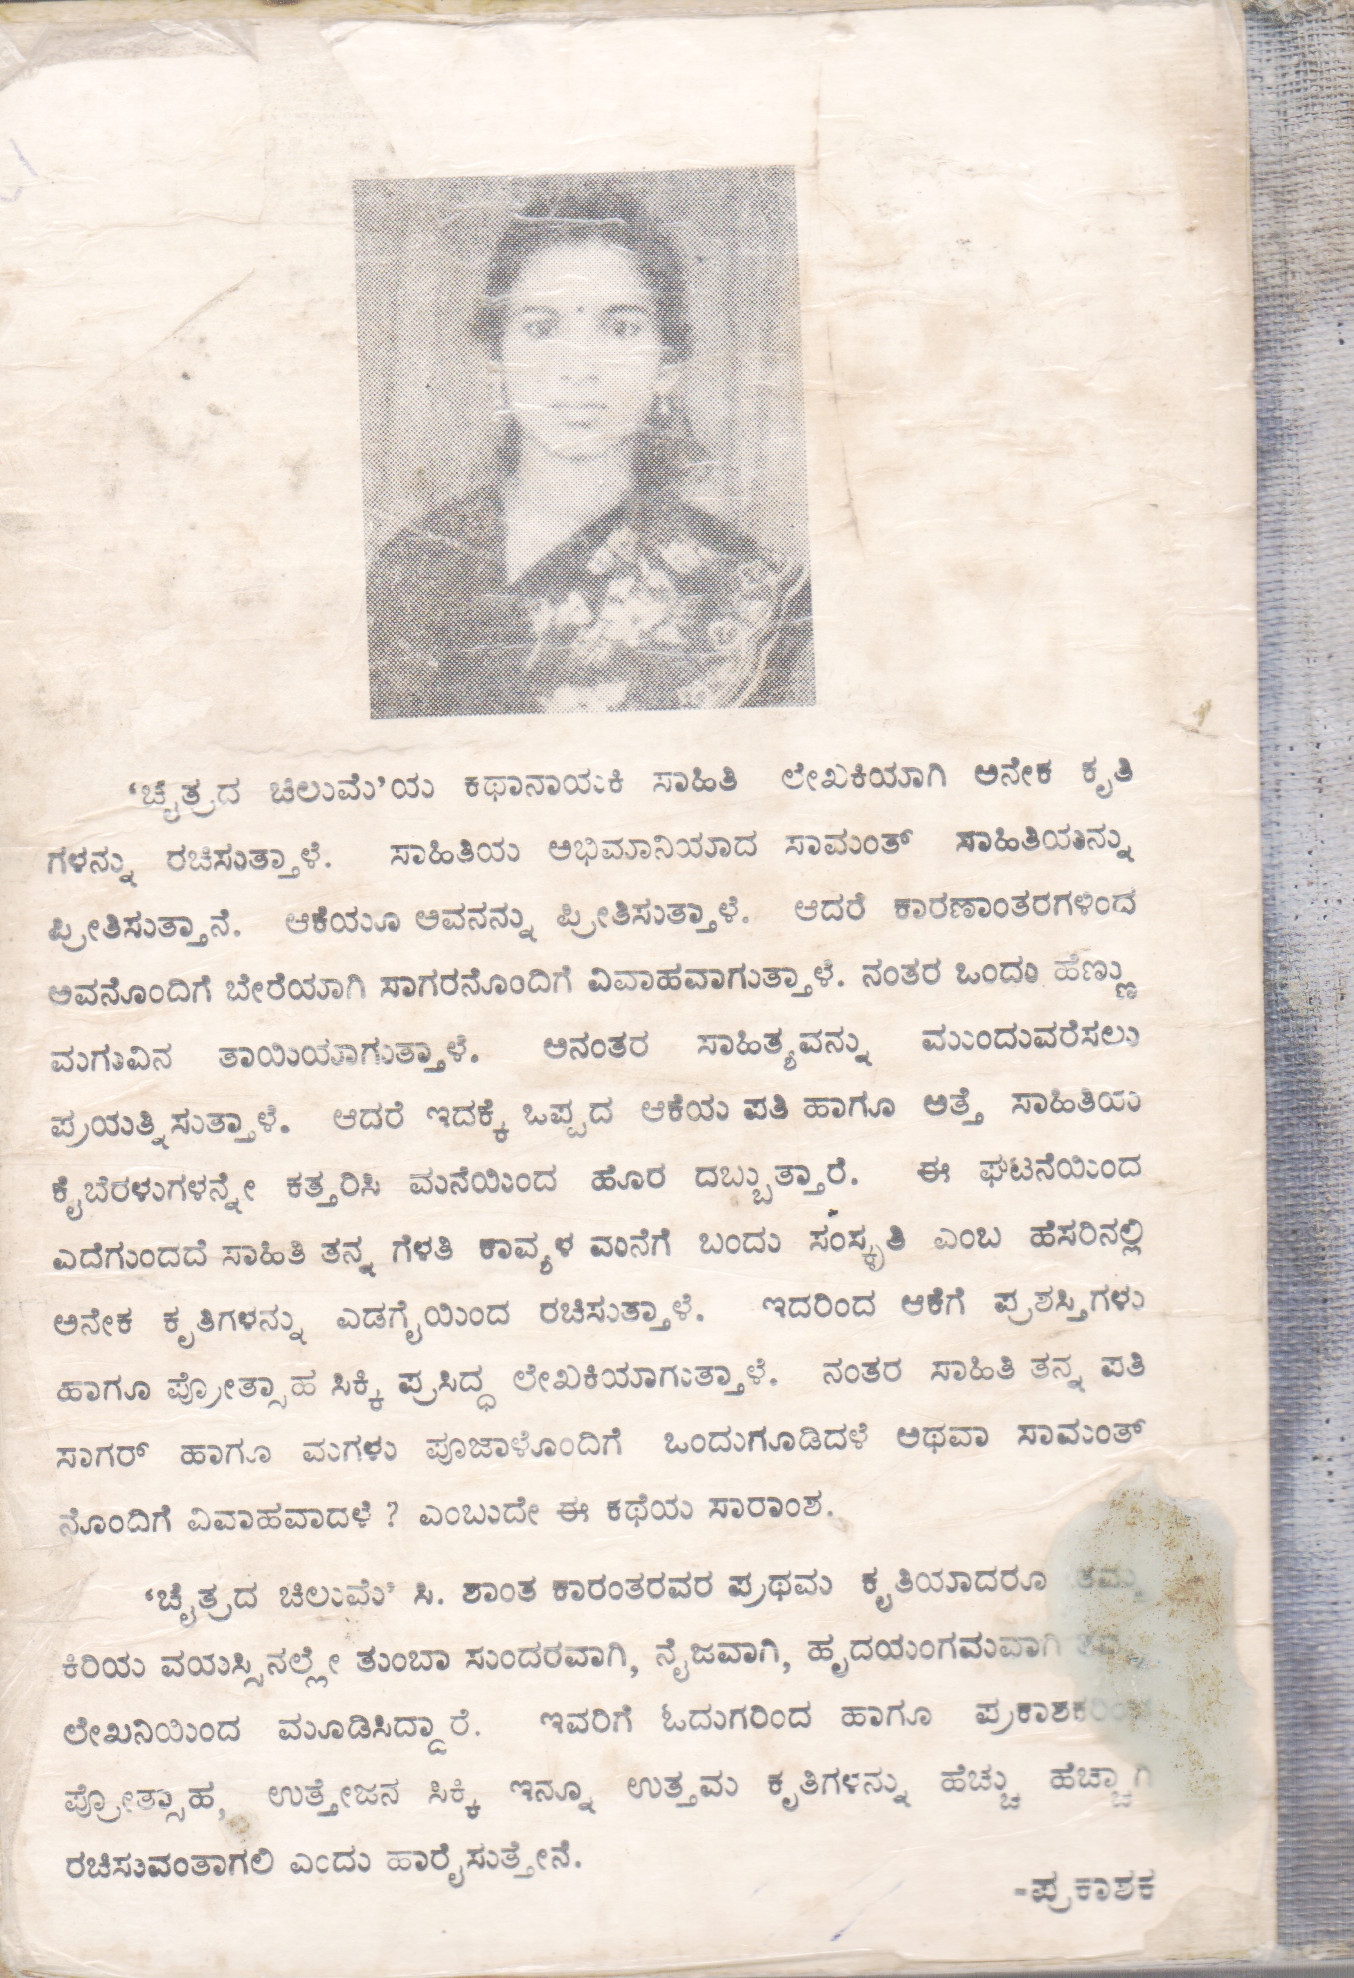 ‘ಚೈತ್ರದ ಚಿಲುಮೆ’ಯ ಕಥಾನಾಯಕಿ ಸಾಹಿತಿ ಲೇಖಕಿಯಾಗಿ ಅನೇಕ ಕೃತಿ
ಗಳನ್ನು ರಚಿಸುತ್ತಾಳೆ. ಸಾಹಿತಿಯ ಅಭಿಮಾನಿಯಾದ ಸಾಮಂತ್ ಸಾಹಿತಿಯನ್ನು
ಪ್ರೀತಿಸುತ್ತಾನೆ. ಆಕೆಯೂ ಅವನನ್ನು ಪ್ರೀತಿಸುತ್ತಾಳೆ. ಆದರೆ ಕಾರಣಾಂತರಗಳಿಂದ
ಅವನೊಂದಿಗೆ ಬೇರೆಯಾಗಿ ಸಾಗರನೊಂದಿಗೆ ವಿವಾಹವಾಗುತ್ತಾಳೆ. ನಂತರ ಒಂದು ಹೆಣ್ಣು
ಮಗುವಿನ ತಾಯಿಯಾಗುತ್ತಾಳೆ. ಅನಂತರ ಸಾಹಿತ್ಯವನ್ನು ಮುಂದುವರೆಸಲು
ಪ್ರಯತ್ನಿಸುತ್ತಾಳೆ. ಆದರೆ ಇದಕ್ಕೆ ಒಪ್ಪದ ಆಕೆಯ ಪತಿ ಹಾಗೂ ಅತ್ತೆ ಸಾಹಿತಿಯ
ಕೈಬೆರಳುಗಳನ್ನೇ ಕತ್ತರಿಸಿ ಮನೆಯಿಂದ ಹೊರ ದಬ್ಬುತ್ತಾರೆ. ಈ ಘಟನೆಯಿಂದ
ಎದೆಗುಂದದೆ ಸಾಹಿತಿ ತನ್ನ ಗೆಳತಿ ಕಾವ್ಯಳ ಮನೆಗೆ ಬಂದು ಸಂಸ್ಕೃತಿ ಎಂಬ ಹೆಸರಿನಲ್ಲಿ
ಅನೇಕ ಕೃತಿಗಳನ್ನು ಎಡಗೈಯಿಂದ ರಚಿಸುತ್ತಾಳೆ. ಇದರಿಂದ ಆಕೆಗೆ ಪ್ರಶಸ್ತಿಗಳು
ಹಾಗೂ ಪ್ರೋತ್ಸಾಹ ಸಿಕ್ಕಿ ಪ್ರಸಿದ್ಧ ಲೇಖಕಿಯಾಗುತ್ತಾಳೆ. ನಂತರ ಸಾಹಿತಿ ತನ್ನ ಪತಿ
ಸಾಗರ್ ಹಾಗೂ ಮಗಳು ಪೂಜಾಳೊಂದಿಗೆ ಒಂದುಗೂಡಿದಳೆ ಅಥವಾ ಸಾಮಂತ್
ನೊಂದಿಗೆ ವಿವಾಹವಾದಳೆ ? ಎಂಬುದೇ ಈ ಕಥೆಯ ಸಾರಾಂಶ.
‘ಚೈತ್ರದ ಚಿಲುಮೆ’ ಸಿ. ಶಾಂತ ಕಾರಂತರವರ ಪ್ರಥಮ ಕೃತಿಯಾದರೂ ತಮ್ಮ
ಕಿರಿಯ ವಯಸ್ಸಿನಲ್ಲೇ ತುಂಬಾ ಸುಂದರವಾಗಿ, ನೈಜವಾಗಿ, ಹೃದಯಂಗಮವಾಗಿ
ಲೇಖನಿಯಿಂದ ಮೂಡಿಸಿದ್ದಾರೆ. ಇವರಿಗೆ ಓದುಗರಿಂದ ಹಾಗೂ ಪ್ರಕಾಶಕರಿಂದ
ಪ್ರೋತ್ಸಾಹ, ಉತ್ತೇಜನ ಸಿಕ್ಕಿ ಇನ್ನೂ ಉತ್ತಮ ಕೃತಿಗಳನ್ನು ಹೆಚ್ಚು ಹೆಚ್ಚಾಗಿ
ರಚಿಸುವಂತಾಗಲಿ ಎಂದು ಹಾರೈಸುತ್ತೇನೆ.
-ಪ್ರಕಾಶಕ